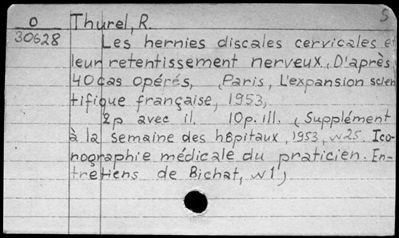 0 Thurel, R. 5
30628 Les hernies discales cervicales et
leur retentissement nerveux, D'après
40 cas opérés, Paris, L'expansion scien
tifique française, 1953,
2p avec il. 10p. ill. (Supplément
à la semaine des hôpitaux, 1953, N25. Ico-
nographie médicale du praticien. En-
tretiens de Bichat, N1)